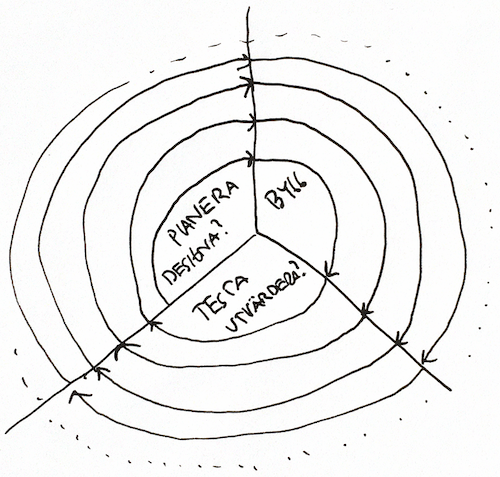 PLANERA
DESIGNA?
BYGG
TESTA
UTVÄRDERA?